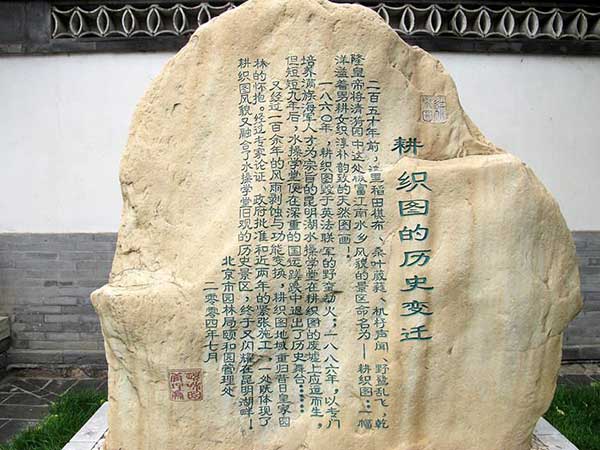 耕织图的历史变迁
二百五十年前,这里稻田棋布、桑叶葳蕤、机杼声闻、野鹭乱飞,乾
隆皇帝将清漪园中这处极富江南水乡风貌的景区命名为——耕织图:一幅
洋溢着男耕女织淳朴韵致的天然图画!
一八六〇年,耕织图毁于英法联军的野蛮劫火;一八八六年,以专门
培养满族海军人才为宗旨的昆明湖水操学堂在耕织图的废墟上应运而生,
但短短九年后,水操学堂便在深重的国运蹉跎中退出了历史舞台……
又经过一百余年的风雨剥蚀与功能变换,耕织图地域重归昔日皇家园
林的怀抱。经过专家论证、政府批准和近两年的紧张施工,一处既体现了
耕织图风貌又融合了水操学堂旧观的历史景区,终于又闪耀在昆明湖畔!
北京市园林局颐和园管理处
二零零四年七月